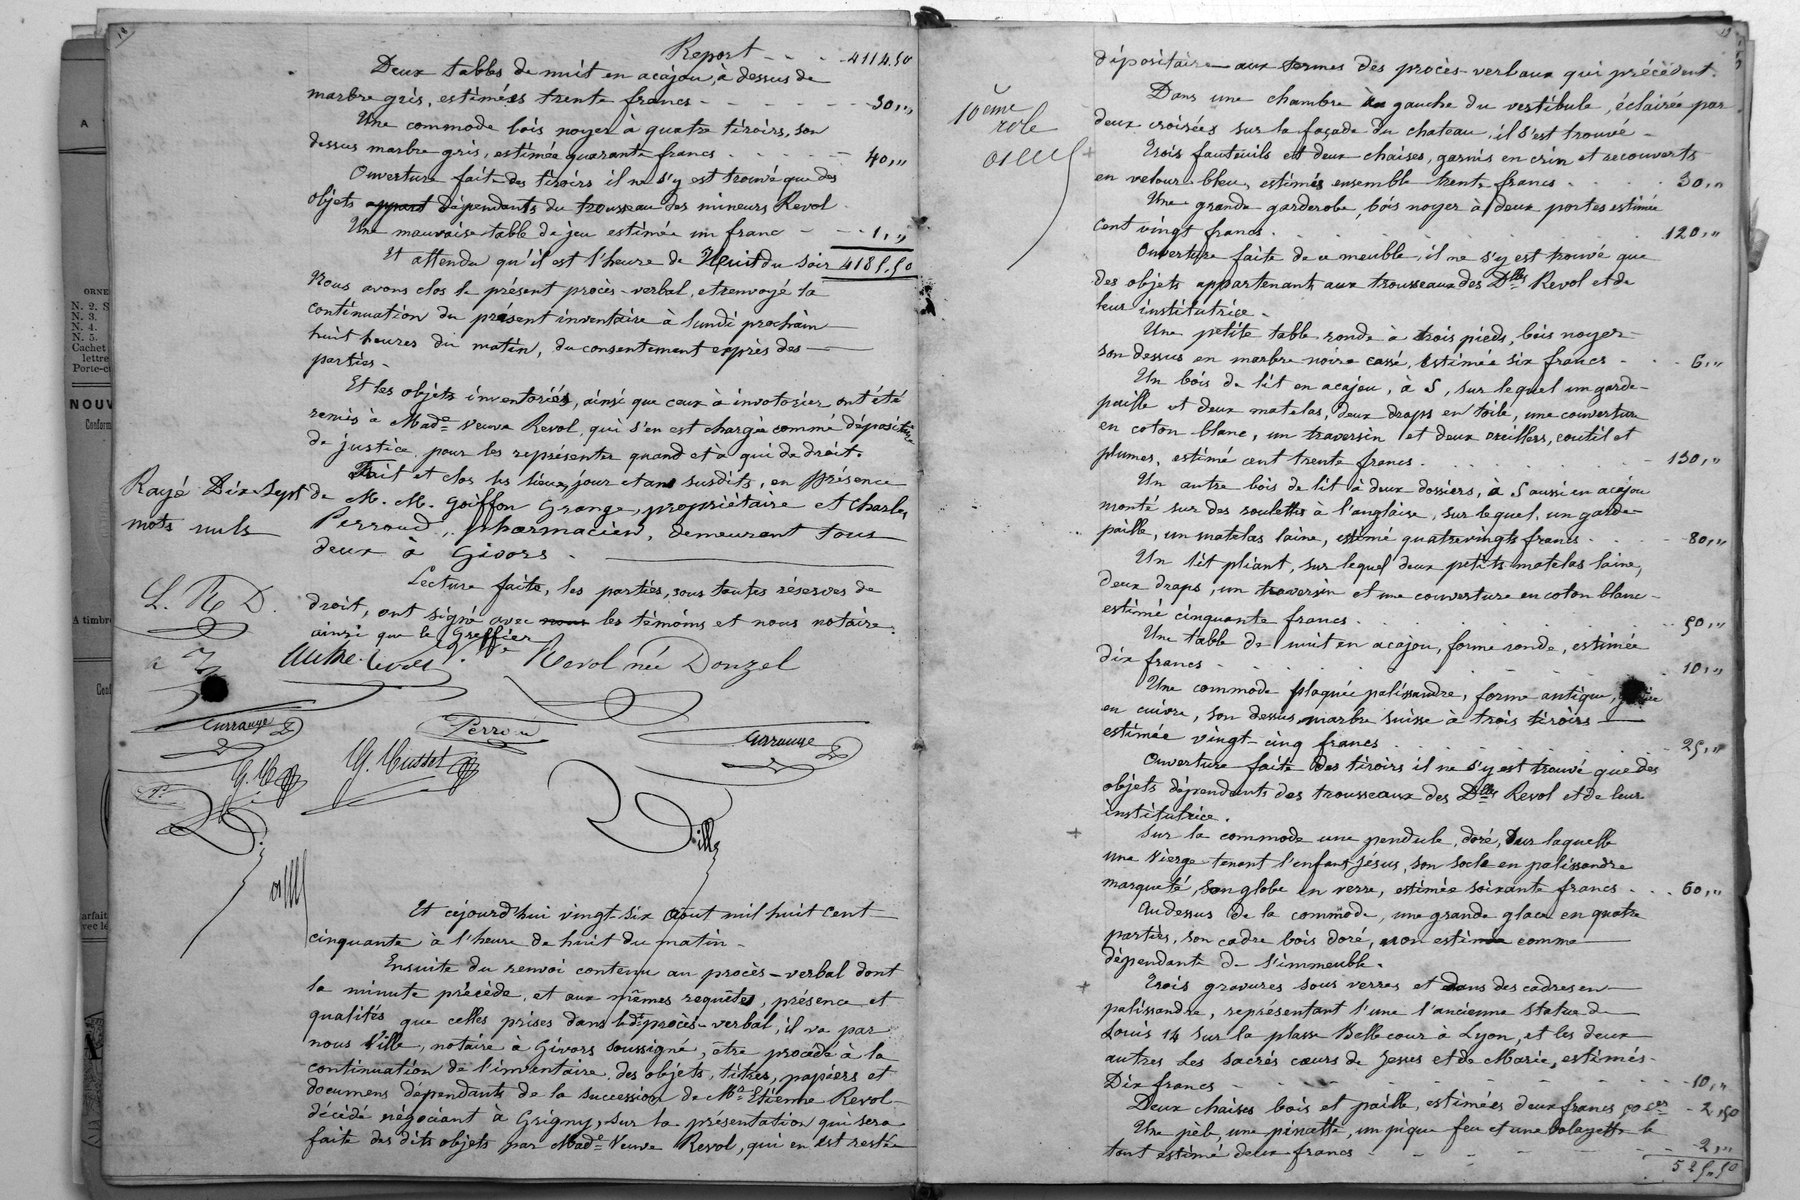 18
Report - - - 4114.50
Deux tables de nuit en acajou, à dessus de
marbre gris, estimées trente francs - - - - - - 30,"
Une commode bois noyer à quatre tiroirs, son
dessus marbre gris, estimée quarante francs - - - - - 40,"
Ouverture faite des tiroirs il ne s'y est trouvé que des
objets appart dépendants du trousseau des mineurs Revol.
Une mauvaise table de jeu estimée un franc - - - 1,"
Et attendu qu'il est l'heure de Neuit du soir 4185,50
Nous avons clos le présent procès-verbal, et renvoyé la
continuation du présent inventaire à lundi prochain
huit heures du matin, du consentement exprès des
parties.
Et les objets inventoriés, ainsi que ceux à invotorier ont été
remis à Made Veuve Revol, qui s'en est chargée comme dépositaire
de justice pour les représenter quand et à qui de droit.
Fait et clos les lieux, jour et an susdits, en présence
de M. M. Goiffon Grange, propriétaire et Charles
Perroud, pharmacien, demeurant tous
deux à Givors.
Rayé Dix-Sept
mots nuls
Lecture faite, les parties, sous toutes réserves de
droit, ont signé avec nous les témoins et nous notaire.
ainsi que le Greffier
L. R D.
Revol née Donzel
G. Musset
Ville
Et cejourd'hui vingt-six aout mil huit cent
cinquante à l'heure de huit du matin -
Ensuite du renvoi contenu au procès-verbal dont
la minute précède, et aux mêmes requêtes, présence et
qualités que celles prises dans ledt procès-verbal, il va par
nous Ville, notaire à Givors soussigné, être procédé à la
continuation de l'inventaire des objets, titres, papiers et
documens dépendants de la succession de Mr Etienne Revol
décédé négociant à Grigny, sur la présentation qui sera
faite des dits objets par Made Veuve Revol, qui en est restée
19
dépositaire aux termes des procès-verbaux qui précèdent.
10eme
role
Dans une chambre à gauche du vestibule, éclairée par
deux croisées sur la façade du chateau, il s'est trouvé -
Trois fauteuils et deux chaises, garnis en crin et recouverts
en velour bleu, estimés ensemble trente francs . . . . 30,"
Une grande garderobe, bois noyer à deux portes estimée
Cent vingt francs . . . . . . 120,"
Ouverture faite de ce meuble, il ne s'y est trouvé que
des objets appartenant aux trousseaux des Dlles Revol et de
leur institutrice.
Une petite table ronde à trois pieds, bois noyer
son dessus en marbre noire cassé, estimée six francs - - - 6,"
Un bois de lit en acajou, à S, sur lequel un garde-
paille et deux matelas, deux draps en toile, une couverture
en coton blanc, un traversin et deux oreillers, coutil et
plumes, estimé cent trente francs . . . . . 130,"
Un autre bois de lit à deux dossiers, à S aussi en acajou
monté sur des roulettes à l'anglaise, sur lequel un garde-
paille, un matelas laine, estimé quatrevingts francs . . . 80,"
Un lit pliant, sur lequel deux petits matelas laine,
deux draps, un traversin et une couverture en coton blanc
estimé cinquante francs . . . . . 50,"
Une table de nuit en acajou, forme ronde, estimée
dix francs . . . . . . 10,"
Une commode plaquée palissandre, forme antique,
en cuivre, son dessus marbre suisse à trois tiroirs
estimée vingt-cinq francs . . . . . 25,"
Ouverture faite des tiroirs il ne s'y est trouvé que des
objets dépendants des trousseaux des Dlles Revol et de leur
institutrice.
Sur la commode une pendule, doré, sur laquelle
une Vierge tenant l'enfant Jésus, son socle en palissandre
marqueté, son globe en verre, estimée soixante francs . . . 60,"
Au dessus de la commode, une grande glace en quatre
parties, son cadre bois doré, non estimée comme
dépendante de l'immeuble.
Trois gravures sous verres et dans des cadres en
palissandre, représentant l'une l'ancienne statue de
Louis 14 sur la plasse Bellecour à Lyon, et les deux
autres les sacrés cœurs de Jesus et de Marie, estimés
Dix francs - - - - - - 10,"
Deux chaises bois et paille, estimées deux francs 50 ces - 2,50
Une pèle, une pincette, un pique feu et une balayette le
tout estimé deux francs - - - - - 2,"
525,50